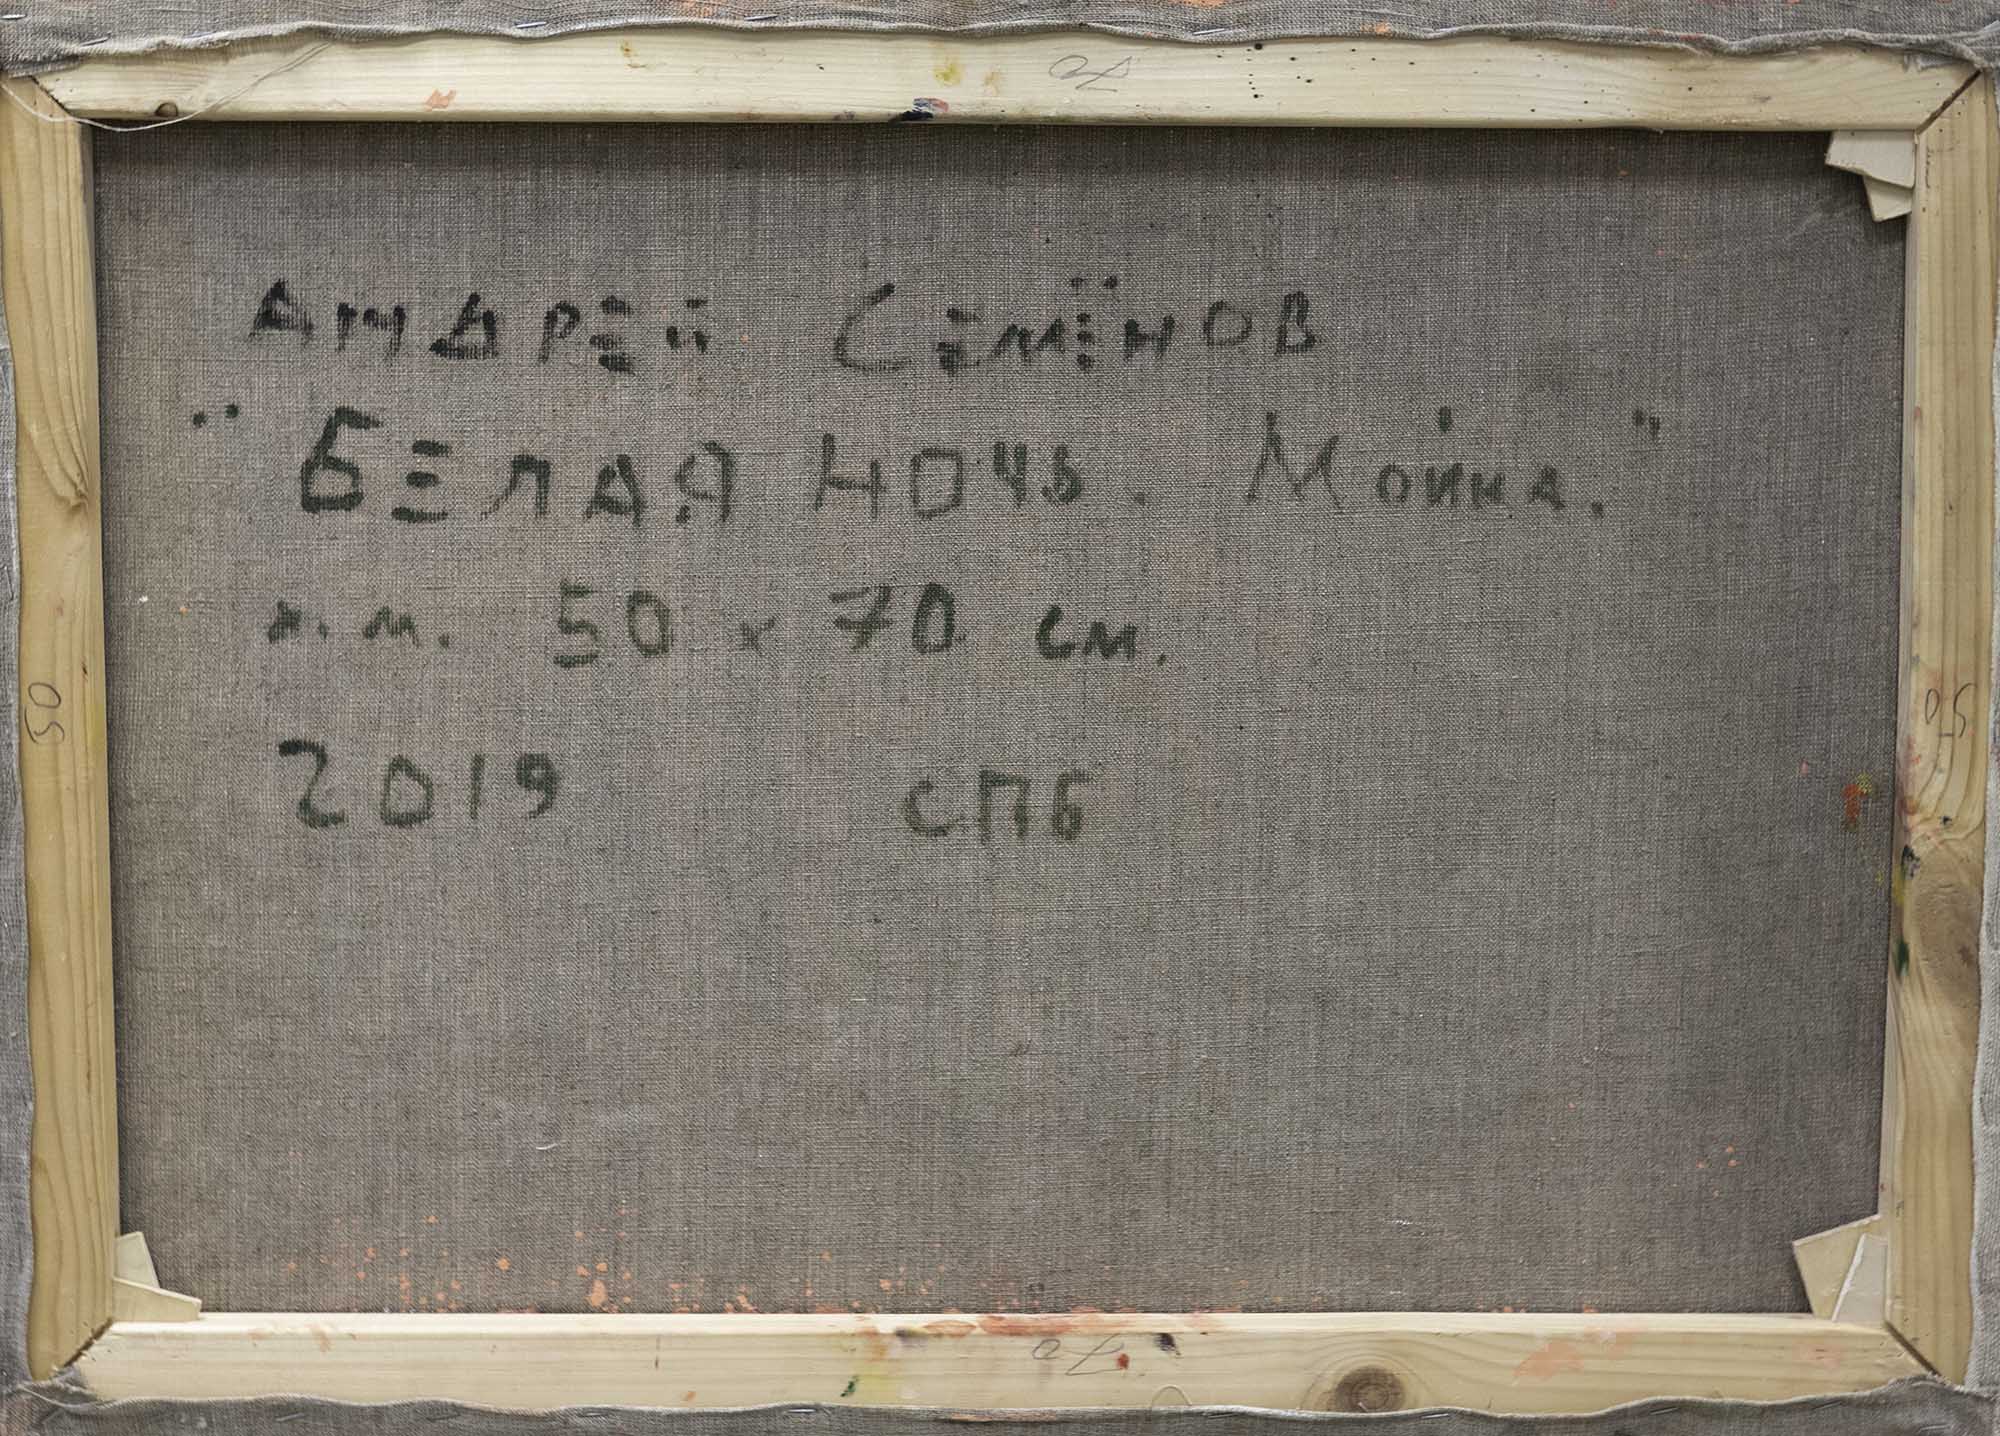 70
Андрей Семёнов
"Белая ночь. Мойка."
х. м. 50 х 70 см.
50
50
2019 СПб
70